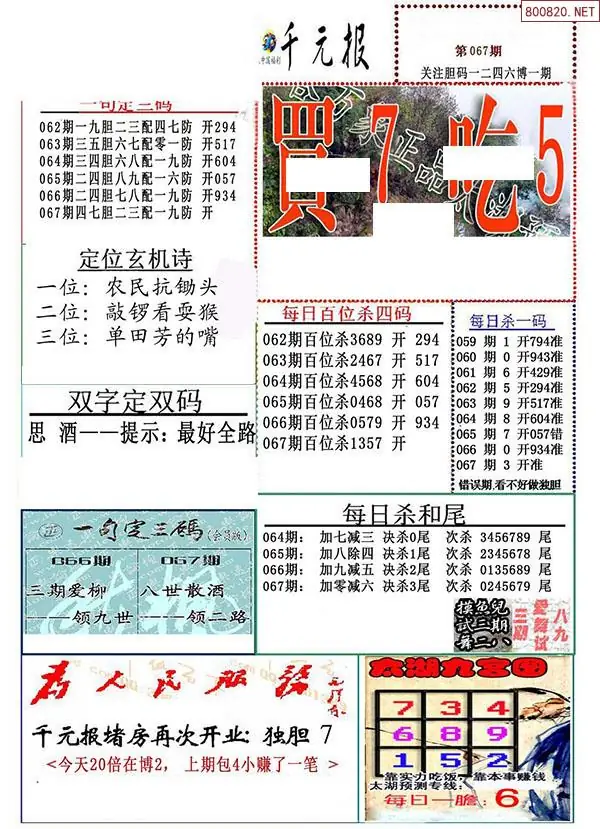 800820.NET
千元报
中国福利
第067期
关注胆码一二四六博一期
一句定三码
062期一九胆二三配四七防 开294
063期三五胆六七配零一防 开517
064期三四胆六八配一九防 开604
065期二四胆八九配一六防 开057
066期二四胆七八配一九防 开934
067期四七胆二三配一九防 开
買7吃5
定位玄机诗
一位：农民抗锄头
二位：敲锣看耍猴
三位：单田芳的嘴
双字定双码
思 酒——提示：最好全路
每日百位杀四码
062期百位杀3689 开 294
063期百位杀2467 开 517
064期百位杀4568 开 604
065期百位杀0468 开 057
066期百位杀0579 开 934
067期百位杀1357 开
每日杀一码
059 期 1 开794准
060 期 0 开943准
061 期 6 开429准
062 期 5 开294准
063 期 9 开517准
064 期 8 开604准
065 期 7 开057错
066 期 0 开934准
067 期 3 开准
错误期,看不好做独胆
正 一句定三碼(会员版)
066期 067期
三期爱柳 八世散酒
——领九世 ——领二路
每日杀和尾
064期: 加七减三 决杀0尾 次杀 3456789 尾
065期: 加八除四 决杀1尾 次杀 2345678 尾
066期: 加九减五 决杀2尾 次杀 0135689 尾
067期: 加零减六 决杀3尾 次杀 0245679 尾
摸鱼兒
试三期
舞二八
三湖
愛舞试
八九
为人民服务
千元报堵房再次开业: 独胆 7
<今天20倍在博2， 上期包4小赚了一笔 >
太湖九宫图
7 3 4
6 8 9
1 5 2
靠实力吃饭，靠本事赚钱
太湖预测专线:
每日一胆: 6